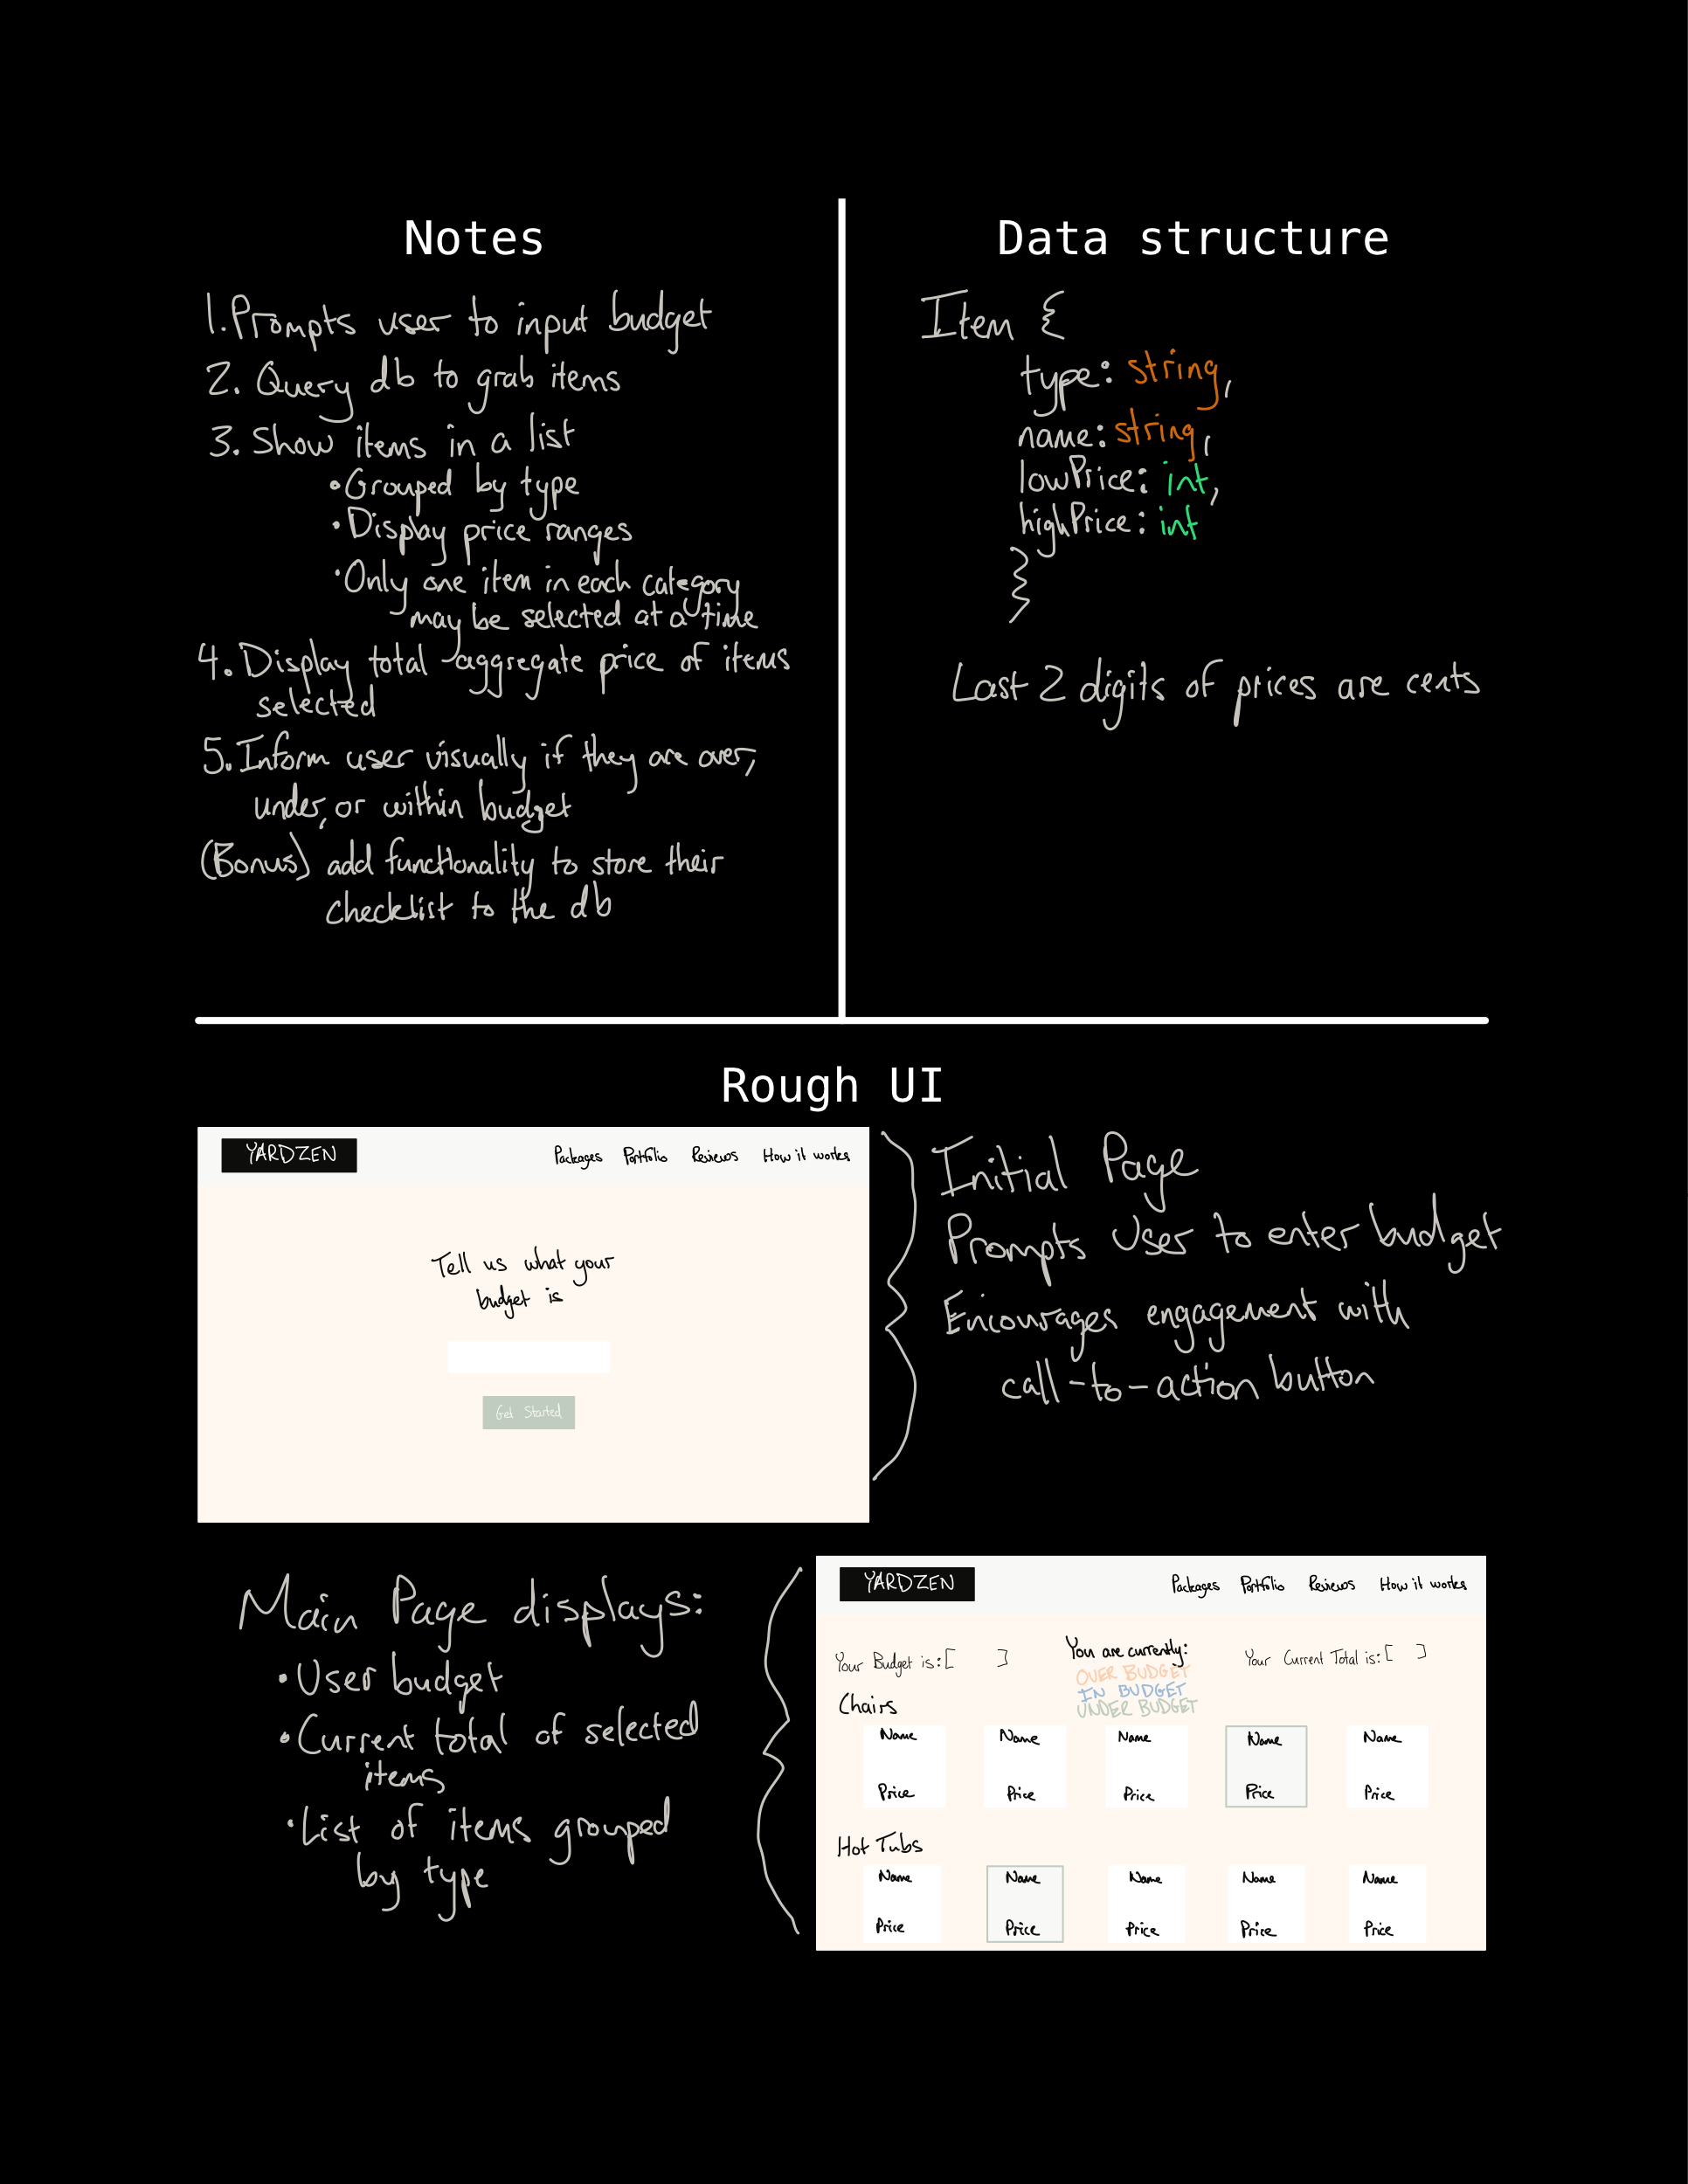 Notes
1. Prompts user to input budget
2. Query db to grab items
3. Show items in a list
• Grouped by type
• Display price ranges
• Only one item in each category
may be selected at a time
4. Display total aggregate price of items
selected
5. Inform user visually if they are over,
under, or within budget
(Bonus) add functionality to store their
checklist to the db
Data structure
Item {
type: string,
name: string,
lowPrice: int,
highPrice: int
}
Last 2 digits of prices are cents
Rough UI
YARDZEN Packages Portfolio Reviews How it works
Tell us what your
budget is
Get Started
Initial Page
Prompts User to enter budget
Encourages engagement with
call-to-action button
Main Page displays:
• User budget
• Current total of selected
items
• List of items grouped
by type
YARDZEN Packages Portfolio Reviews How it works
Your Budget is: [ ] You are currently: Your Current Total is: [ ]
OVER BUDGET
IN BUDGET
UNDER BUDGET
Chairs
Name Name Name Name Name
Price Price Price Price Price
Hot Tubs
Name Name Name Name Name
Price Price Price Price Price